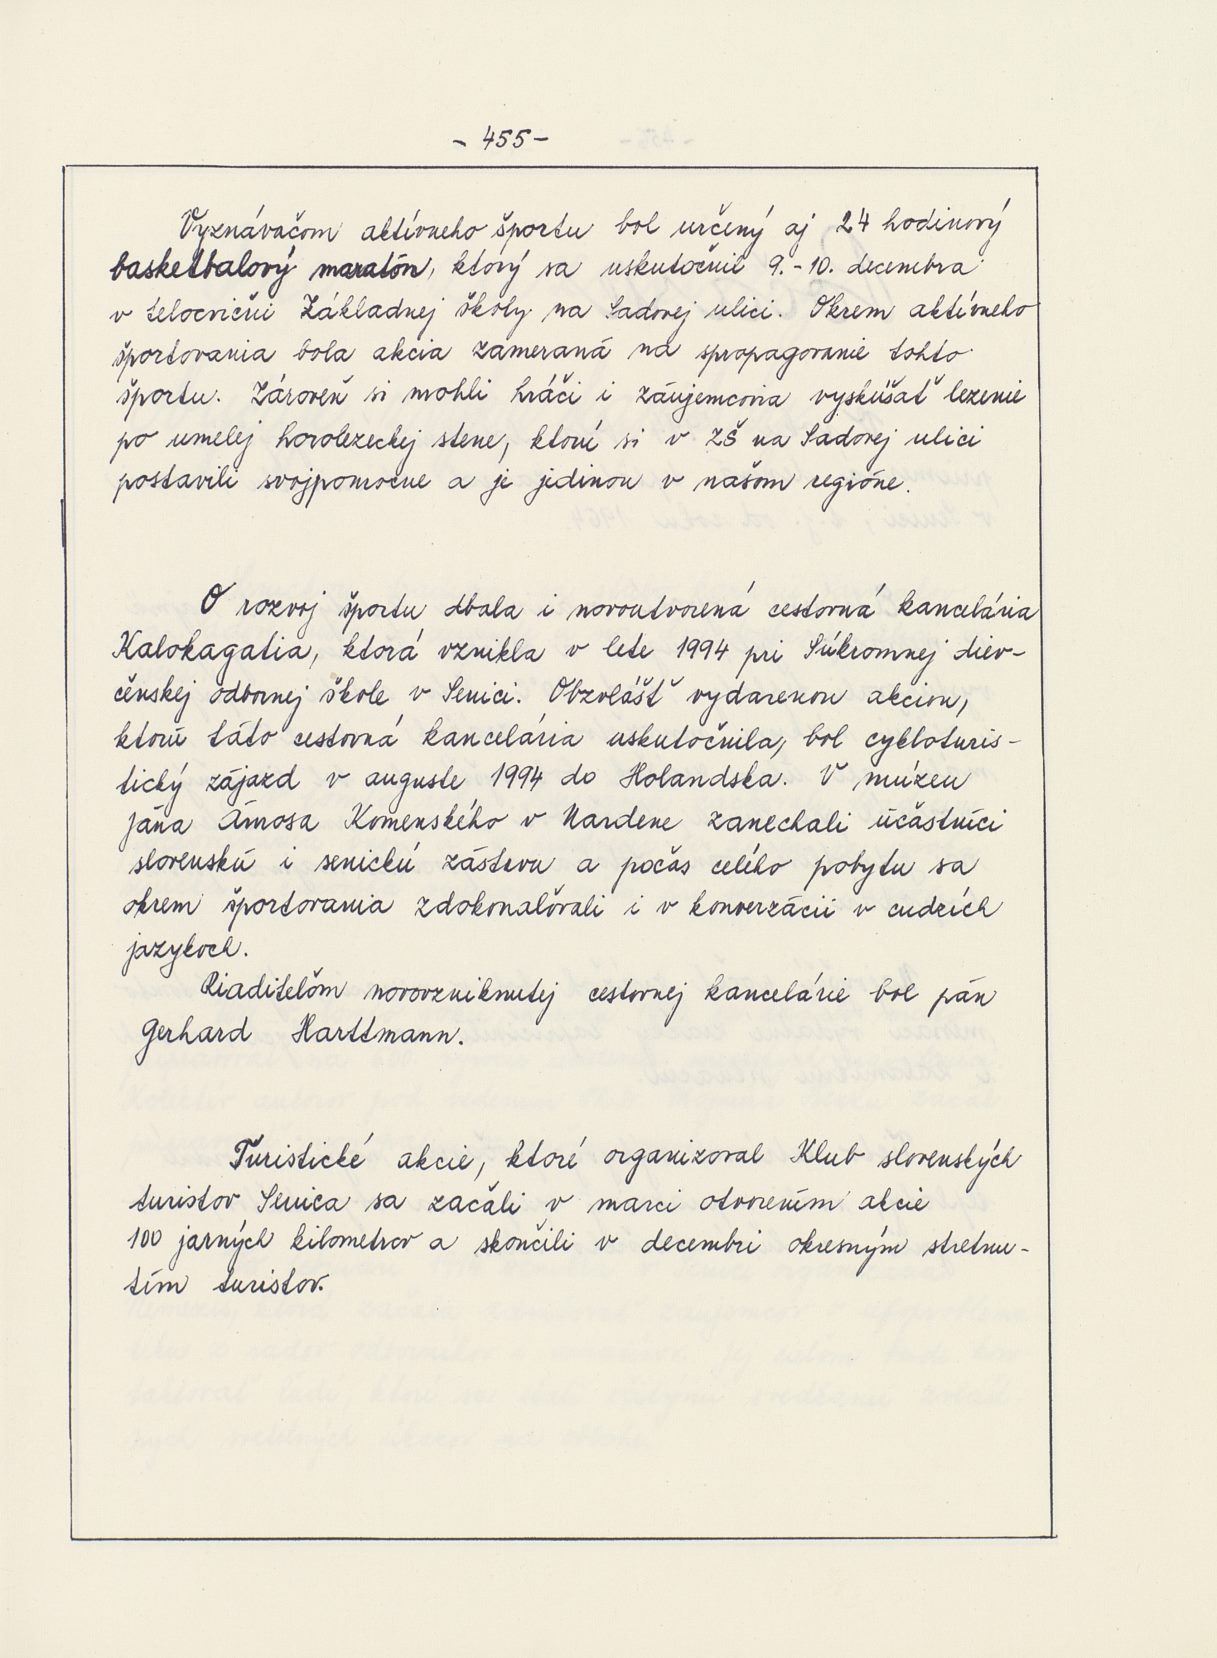 - 455 -
Vyznávačom aktívneho športu bol určený aj 24 hodinový
basketbalový maratón, ktorý sa uskutočnil 9.-10. decembra
v telocvični Základnej školy na Sadovej ulici. Okrem aktívneho
športovania bola akcia zameraná na spropagovanie tohto
športu. Zároveň si mohli hráči i záujemcovia vyskúšať lezenie
po umelej horolezeckej stene, ktorú si v ZŠ na Sadovej ulici
postavili svojpomocne a je jedinou v našom regióne.
O rozvoj športu dbala i novoutvorená cestovná kancelária
Kalokagatia, ktorá vznikla v lete 1994 pri Súkromnej diev-
čenskej odbornej škole v Senici. Obzvlášť vydarenou akciou,
ktorú táto cestovná kancelária uskutočnila, bol cykloturis-
tický zájazd v auguste 1994 do Holandska. V múzeu
Jána Ámosa Komenského v Nardene zanechali účastníci
slovenskú i senickú zástavu a počas celého pobytu sa
okrem športovania zdokonaľovali i v konverzácii v cudzích
jazykoch.
Riaditeľom novovzniknutej cestovnej kancelárie bol pán
Gerhard Harttmann.
Turistické akcie, ktoré organizoval Klub slovenských
turistov Senica sa začali v marci otvorením akcie
100 jarných kilometrov a skončili v decembri okresným stretnu-
tím turistov.